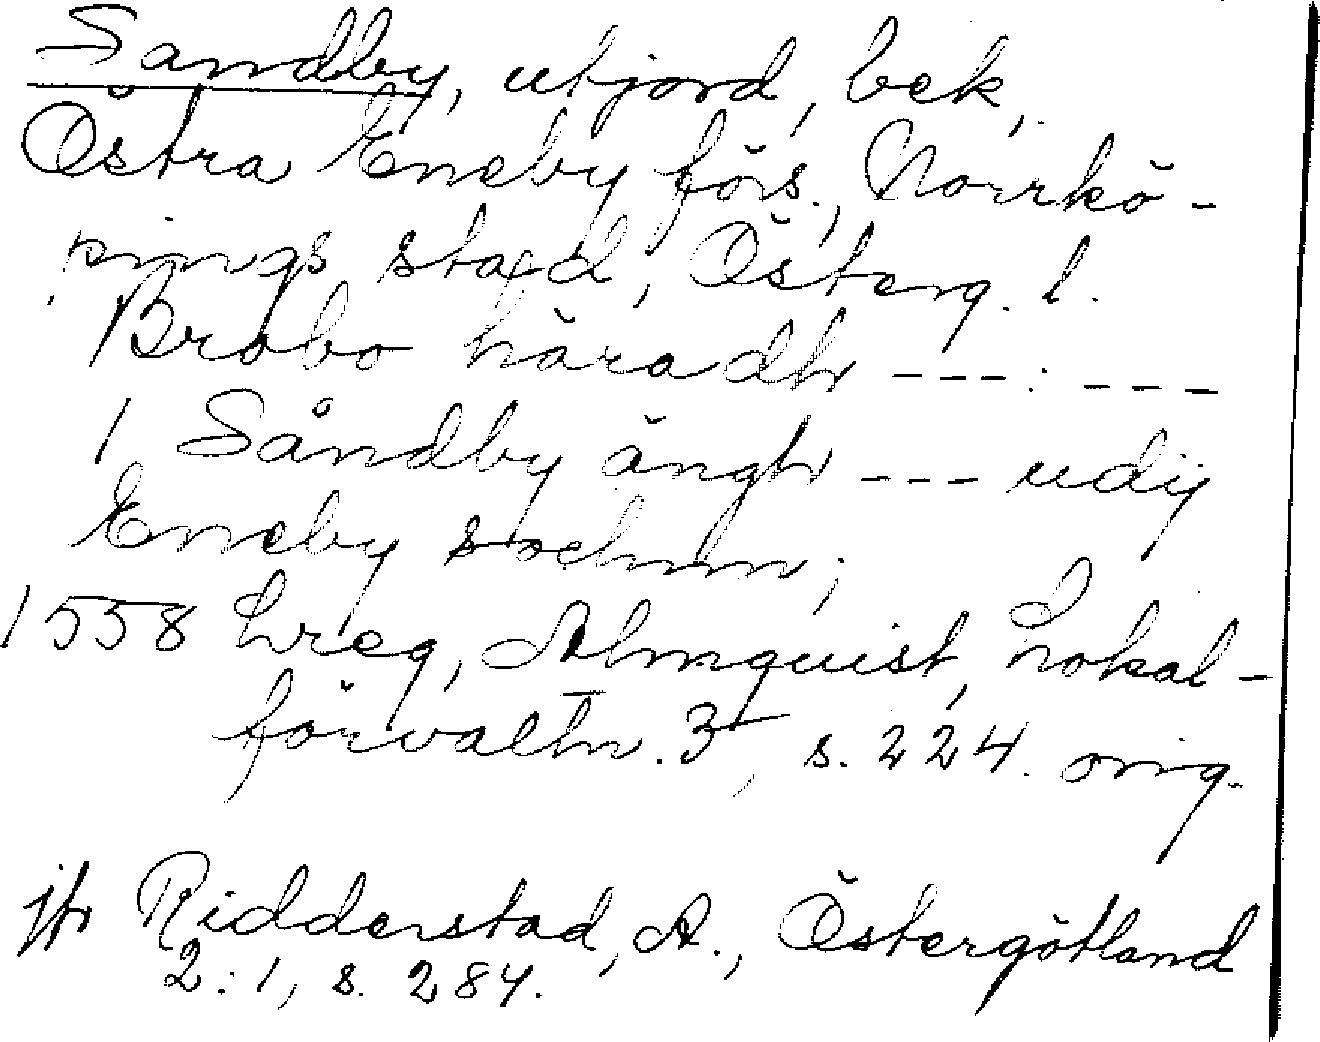 Sandby, utjord, bek.,
Östra Eneby förs., Norrkö-
pings stad, Österg. l.
Brobo häradh ---:---
1 Såndby ängh --- udij
Eneby sochnn;
1558 Lreg, Almquist, Lokal-
förvaltn. 3, s. 224. orig.
jfr Ridderstad, A., Östergötland
2:1, s. 284.